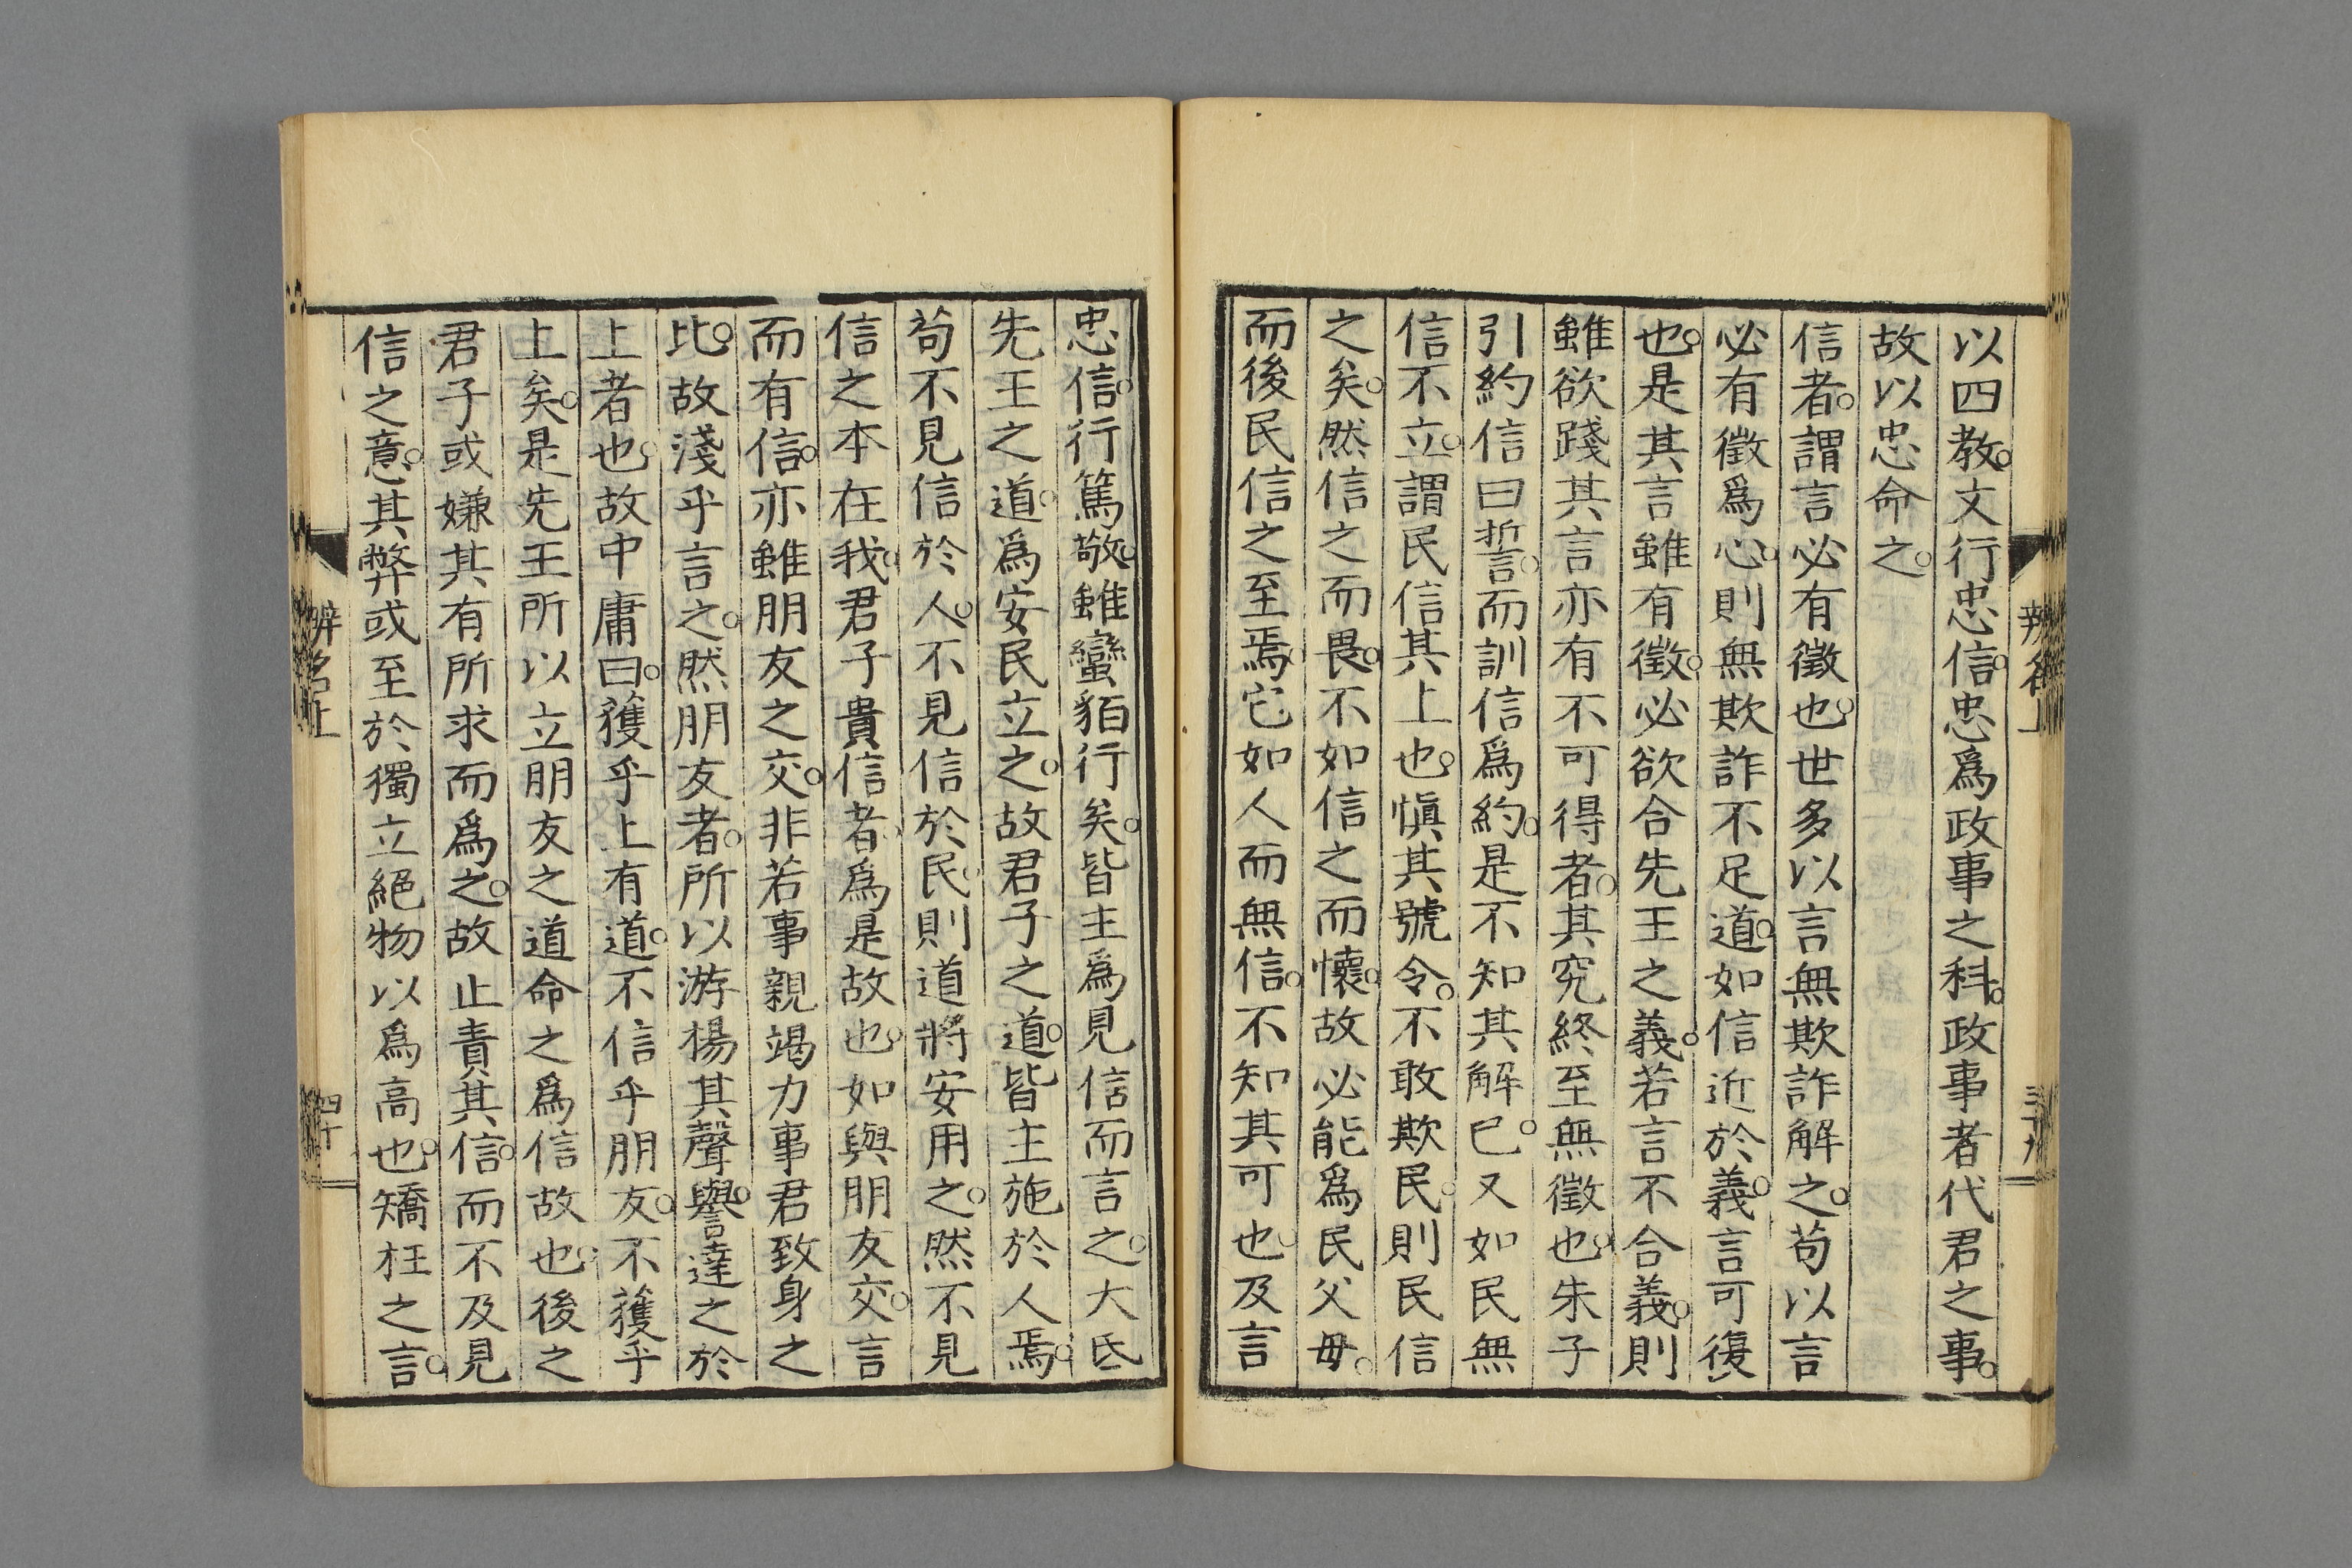 以四教。文行忠信。忠爲政事之科。政事者代君之事。
故以忠命之。
信者。謂言必有徵也。世多以言無欺詐解之。苟以言
必有徵爲心。則無欺詐不足道。如信近於義。言可復
也。是其言雖有徵。必欲合先王之義。若言不合義。則
雖欲踐其言亦有不可得者。其究終至無徵也。朱子
引約信曰誓。而訓信爲約。是不知其解已。又如民無
信不立。謂民信其上也。愼其號令。不敢欺民。則民信
之矣。然信之而畏。不如信之而懷。故必能爲民父母。
而後民信之至焉。它如人而無信。不知其可也。及言
忠信。行篤敬。雖蠻貊行矣。皆主爲見信而言之。大氐
先王之道。爲安民立之。故君子之道。皆主施於人焉。
苟不見信於人。不見信於民。則道將安用之。然不見
信之本在我。君子貴信者。爲是故也。如與朋友交。言
而有信。亦雖朋友之交。非若事親竭力事君致身之
比。故淺乎言之。然朋友者。所以游揚其聲譽。達之於
上者也。故中庸曰。獲乎上有道。不信乎朋友。不獲乎
上矣。是先王所以立朋友之道命之爲信故也。後之
君子或嫌其有所求而爲之。故止責其信。而不及見
信之意。其弊或至於獨立絕物以爲高也。矯枉之言。
辨名上
三十九
辨名上
四十